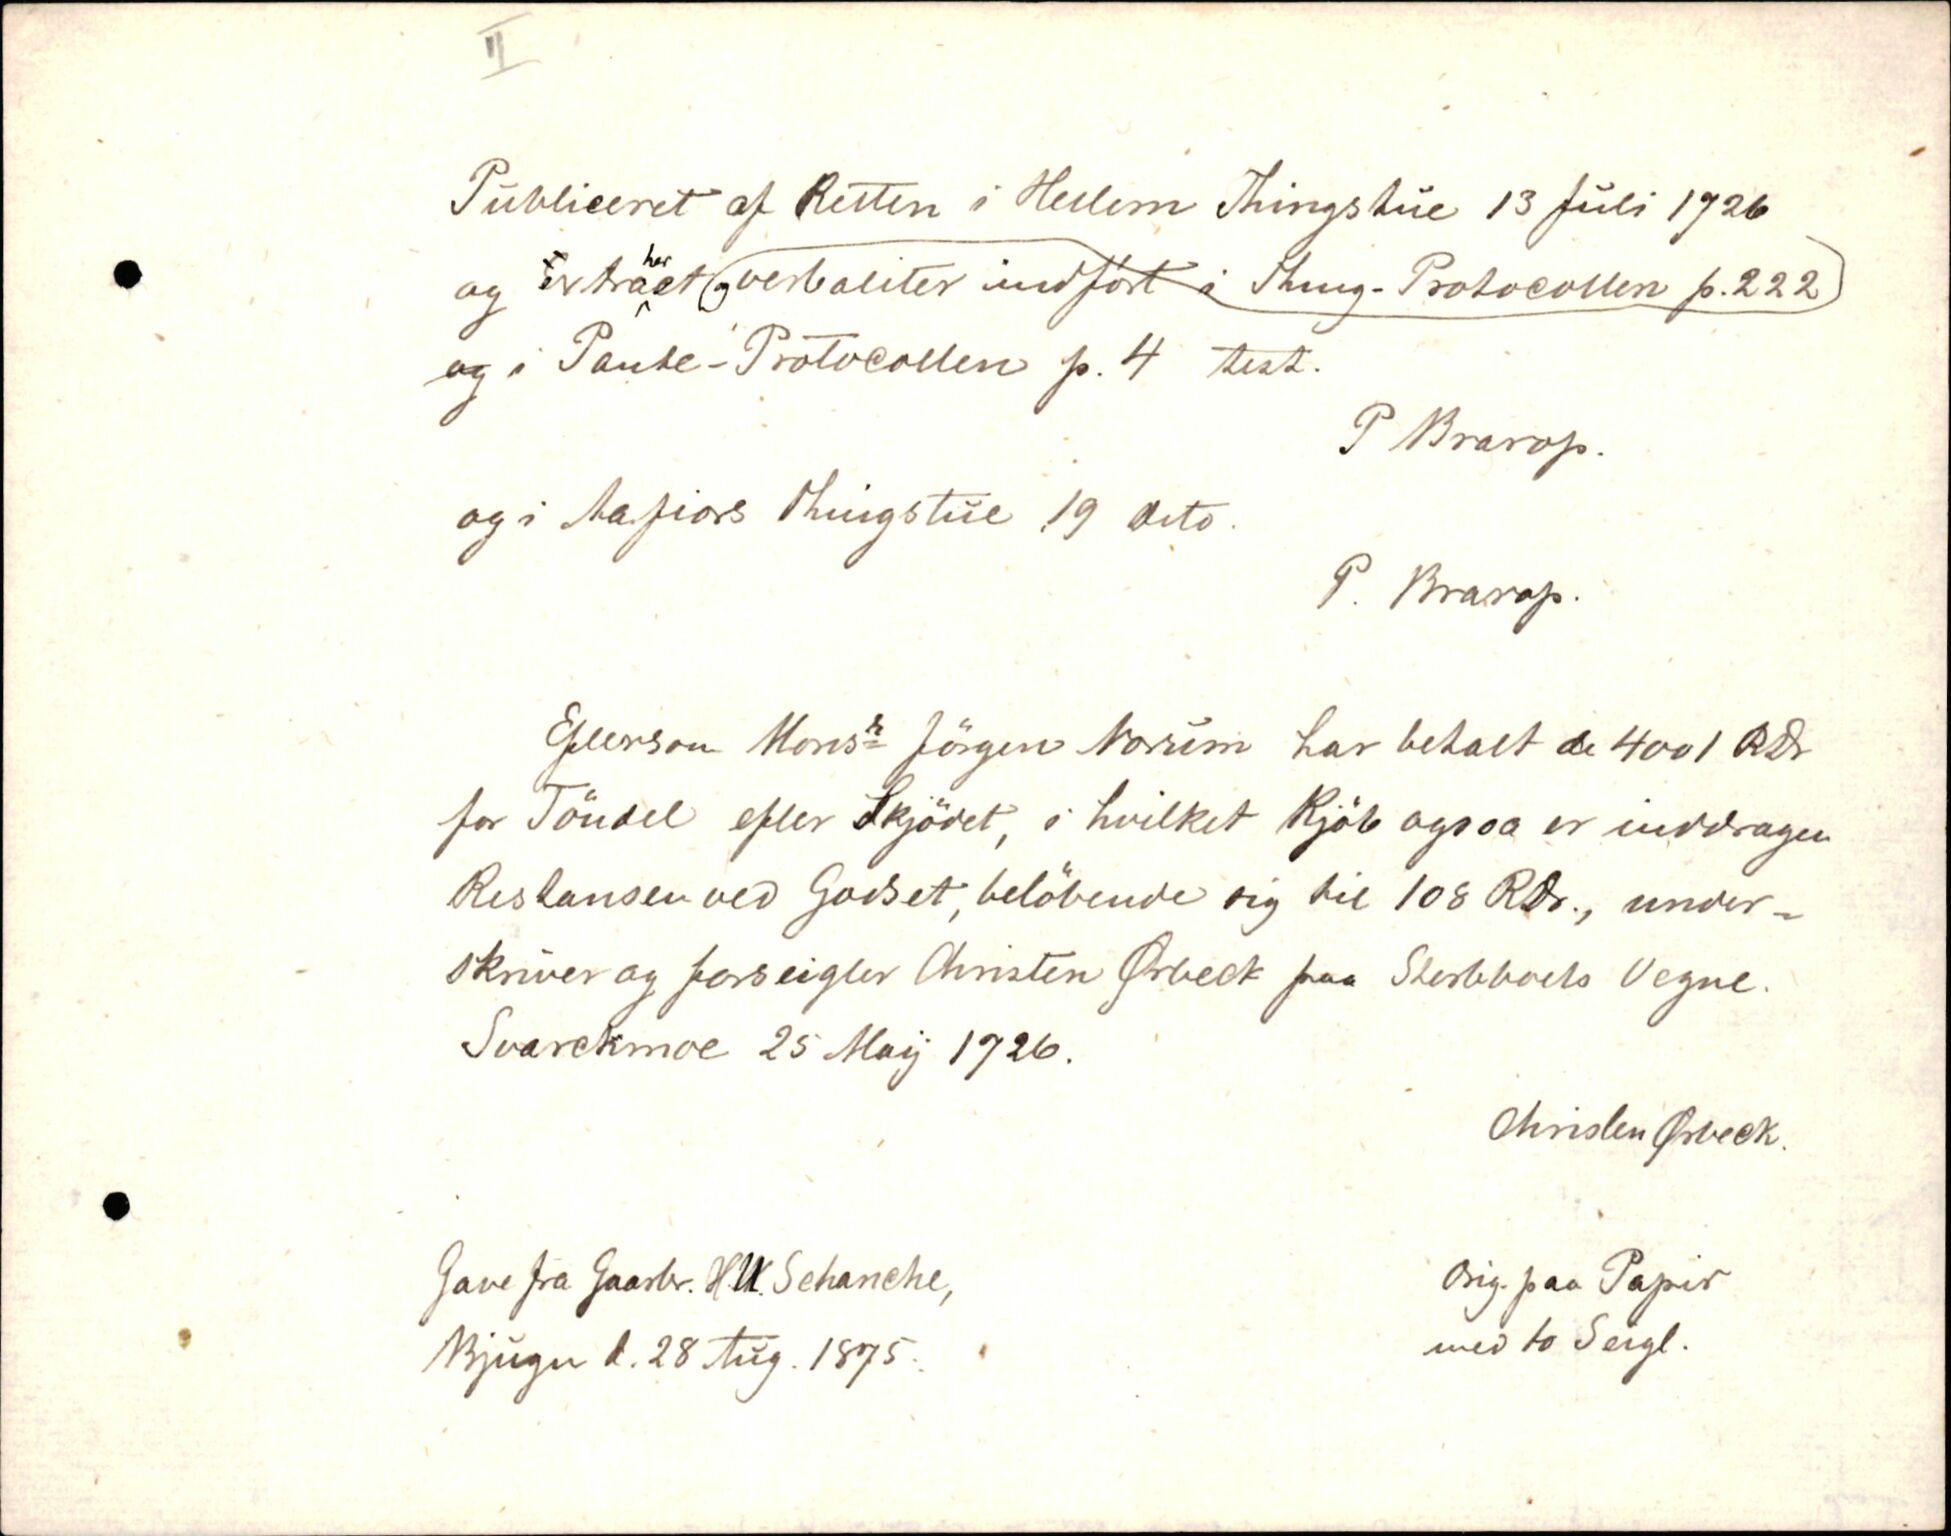 II
Publiceret af Retten i Hellem Thingstue 13 Juli 1726
og Extract her og verbaliter indført i Thing-Protocollen p. 222
og i Pante-Protocollen p. 4 test.
P Brarop.
og i Aafiors Thingstue 19 dito.
P. Brarop.
Efterson Monsr Jörgen Norum har betalt de 4001 RDr
for Töndel efter Skjödet, i hvilket Kjöb ogsaa er inddragen
Restansen ved Godset, belöbende sig til 108 RDr., under-
skriver og forseigler Christen Ørbeck paa Sterbboets Vegne.
Svarckmoe 25 Maij 1726.
Christen Ørbeck.
Gave fra Gaardbr. H.U. Schanche,
Bjugn d. 28 Aug. 1875.
Orig. paa Papir
med to Seigl.